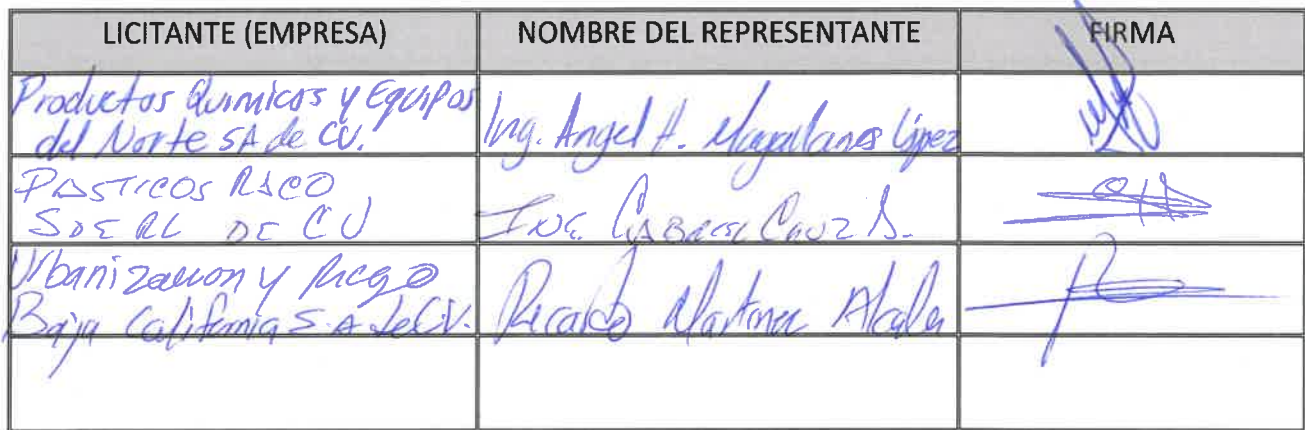 LICITANTE (EMPRESA) NOMBRE DEL REPRESENTANTE FIRMA
Productos Quimicos y Equipos
del Norte SA de CV. Ing. Angel H. Magallanes López
PLASTICOS RACO
S DE RL DE CV ING. GABRIEL CRUZ
Urbanizacion y Riego
Baja California S.A de C.V. Ricardo Martinez Alcala